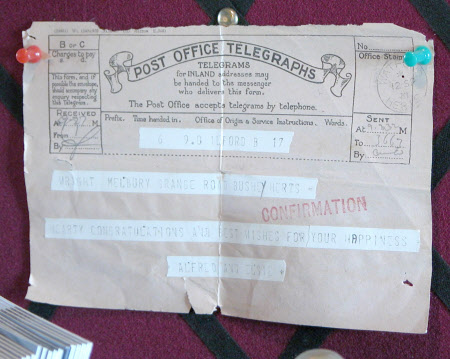 B or C
Charges to pay
POST OFFICE TELEGRAPHS
No.
Office Stamp
TELEGRAMS
for INLAND addresses may
be handed to the messenger
who delivers this form.
This form, and if
possible the envelope,
should accompany any
enquiry respecting
this Telegram.
The Post Office accepts telegrams by telephone.
RECEIVED
At M
From
By
Prefix. Time handed in. Office of Origin & Service Instructions. Words.
SENT
At M
To
By
6 9.0 ILFORD B 17
WRIGHT MELBURY GRANGE RD BUSHEY HERTS =
CONFIRMATION
HEARTY CONGRATULATIONS AND BEST WISHES FOR YOUR HAPPINESS
ALFRED AND